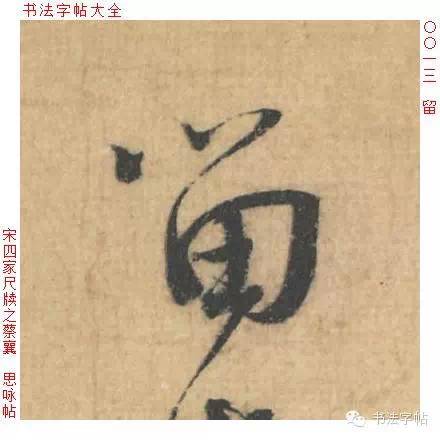 书法字帖大全
〇〇一三 留
留
宋四家尺牍之蔡襄 思咏帖
书法字帖